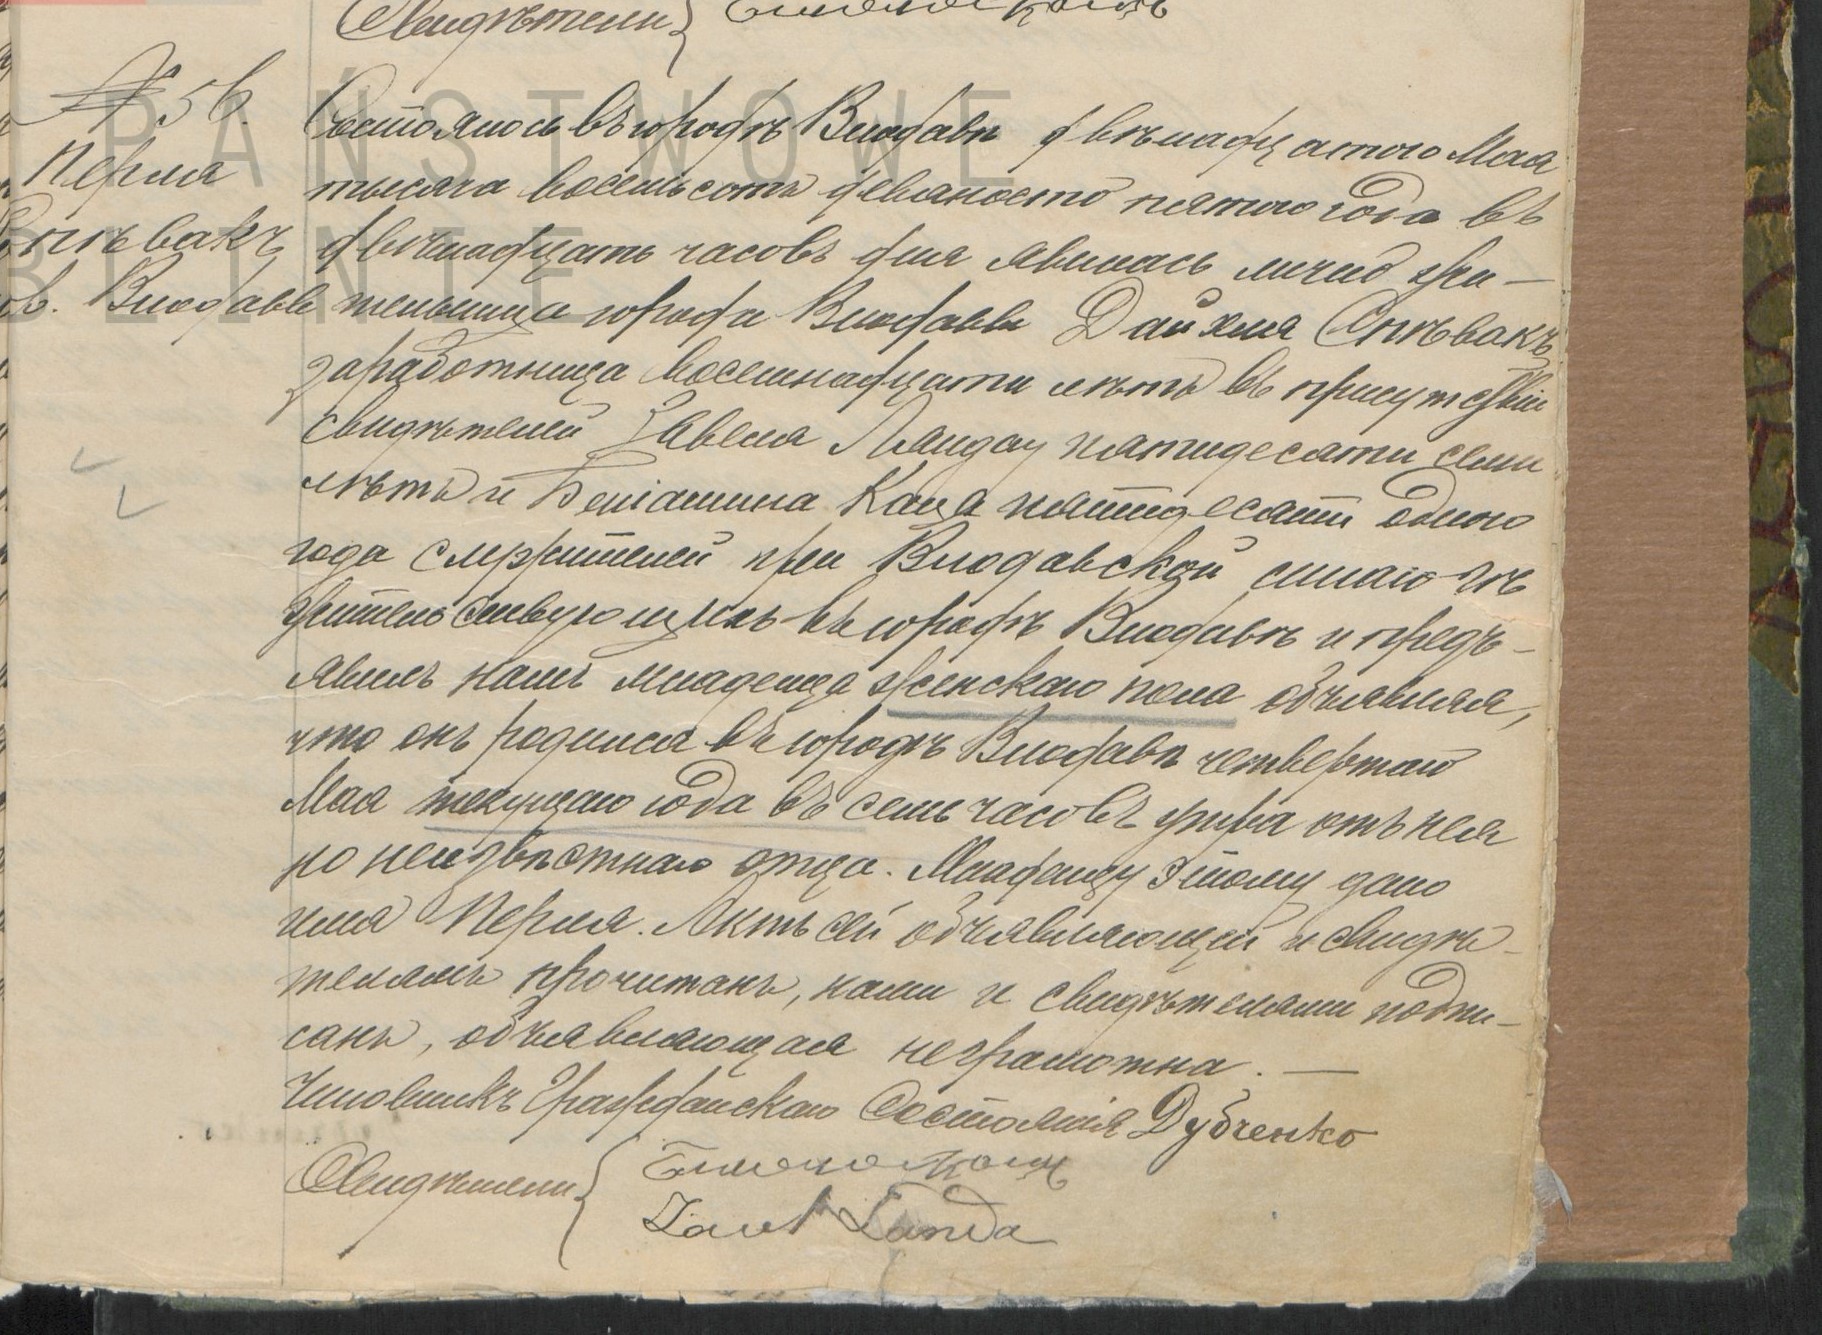 Свидѣтели
№ 56.
Перля
Спѣвакъ
ов. Влодавы
Состоялось въ городѣ Влодавѣ двѣнадцатого Мая
тысяча восемьсотъ девяносто пятого года въ
двѣнадцать часовъ дня явилась лично жи-
тельница города Влодавы Дайхля Спѣвакъ
заработница восемнадцати лѣтъ въ присутствіи
свидѣтелей Завеля Ляндау пятидесяти семи
лѣтъ и Беніамина Каца пятидесяти одного
года служителей при Влодавской синагогѣ
жительствующихъ въ городѣ Влодавѣ и предъ-
явилъ намъ младенца женскаго пола объявляя,
что онъ родился въ городѣ Влодавѣ четвертаго
Мая текущаго года въ семь часовъ утра отъ нея
но неизвѣстнаго отца. Младенцу этому дано
имя Перля. Актъ сей объявляющей и свидѣ-
телямъ прочитанъ, нами и свидѣтелями подпи-
санъ, объявляющая неграмотна. —
Чиновникъ Гражданскаго Состоянія Дубченко
Свидѣтели
Zawel Landa
PAŃSTWOWE
BLINIE